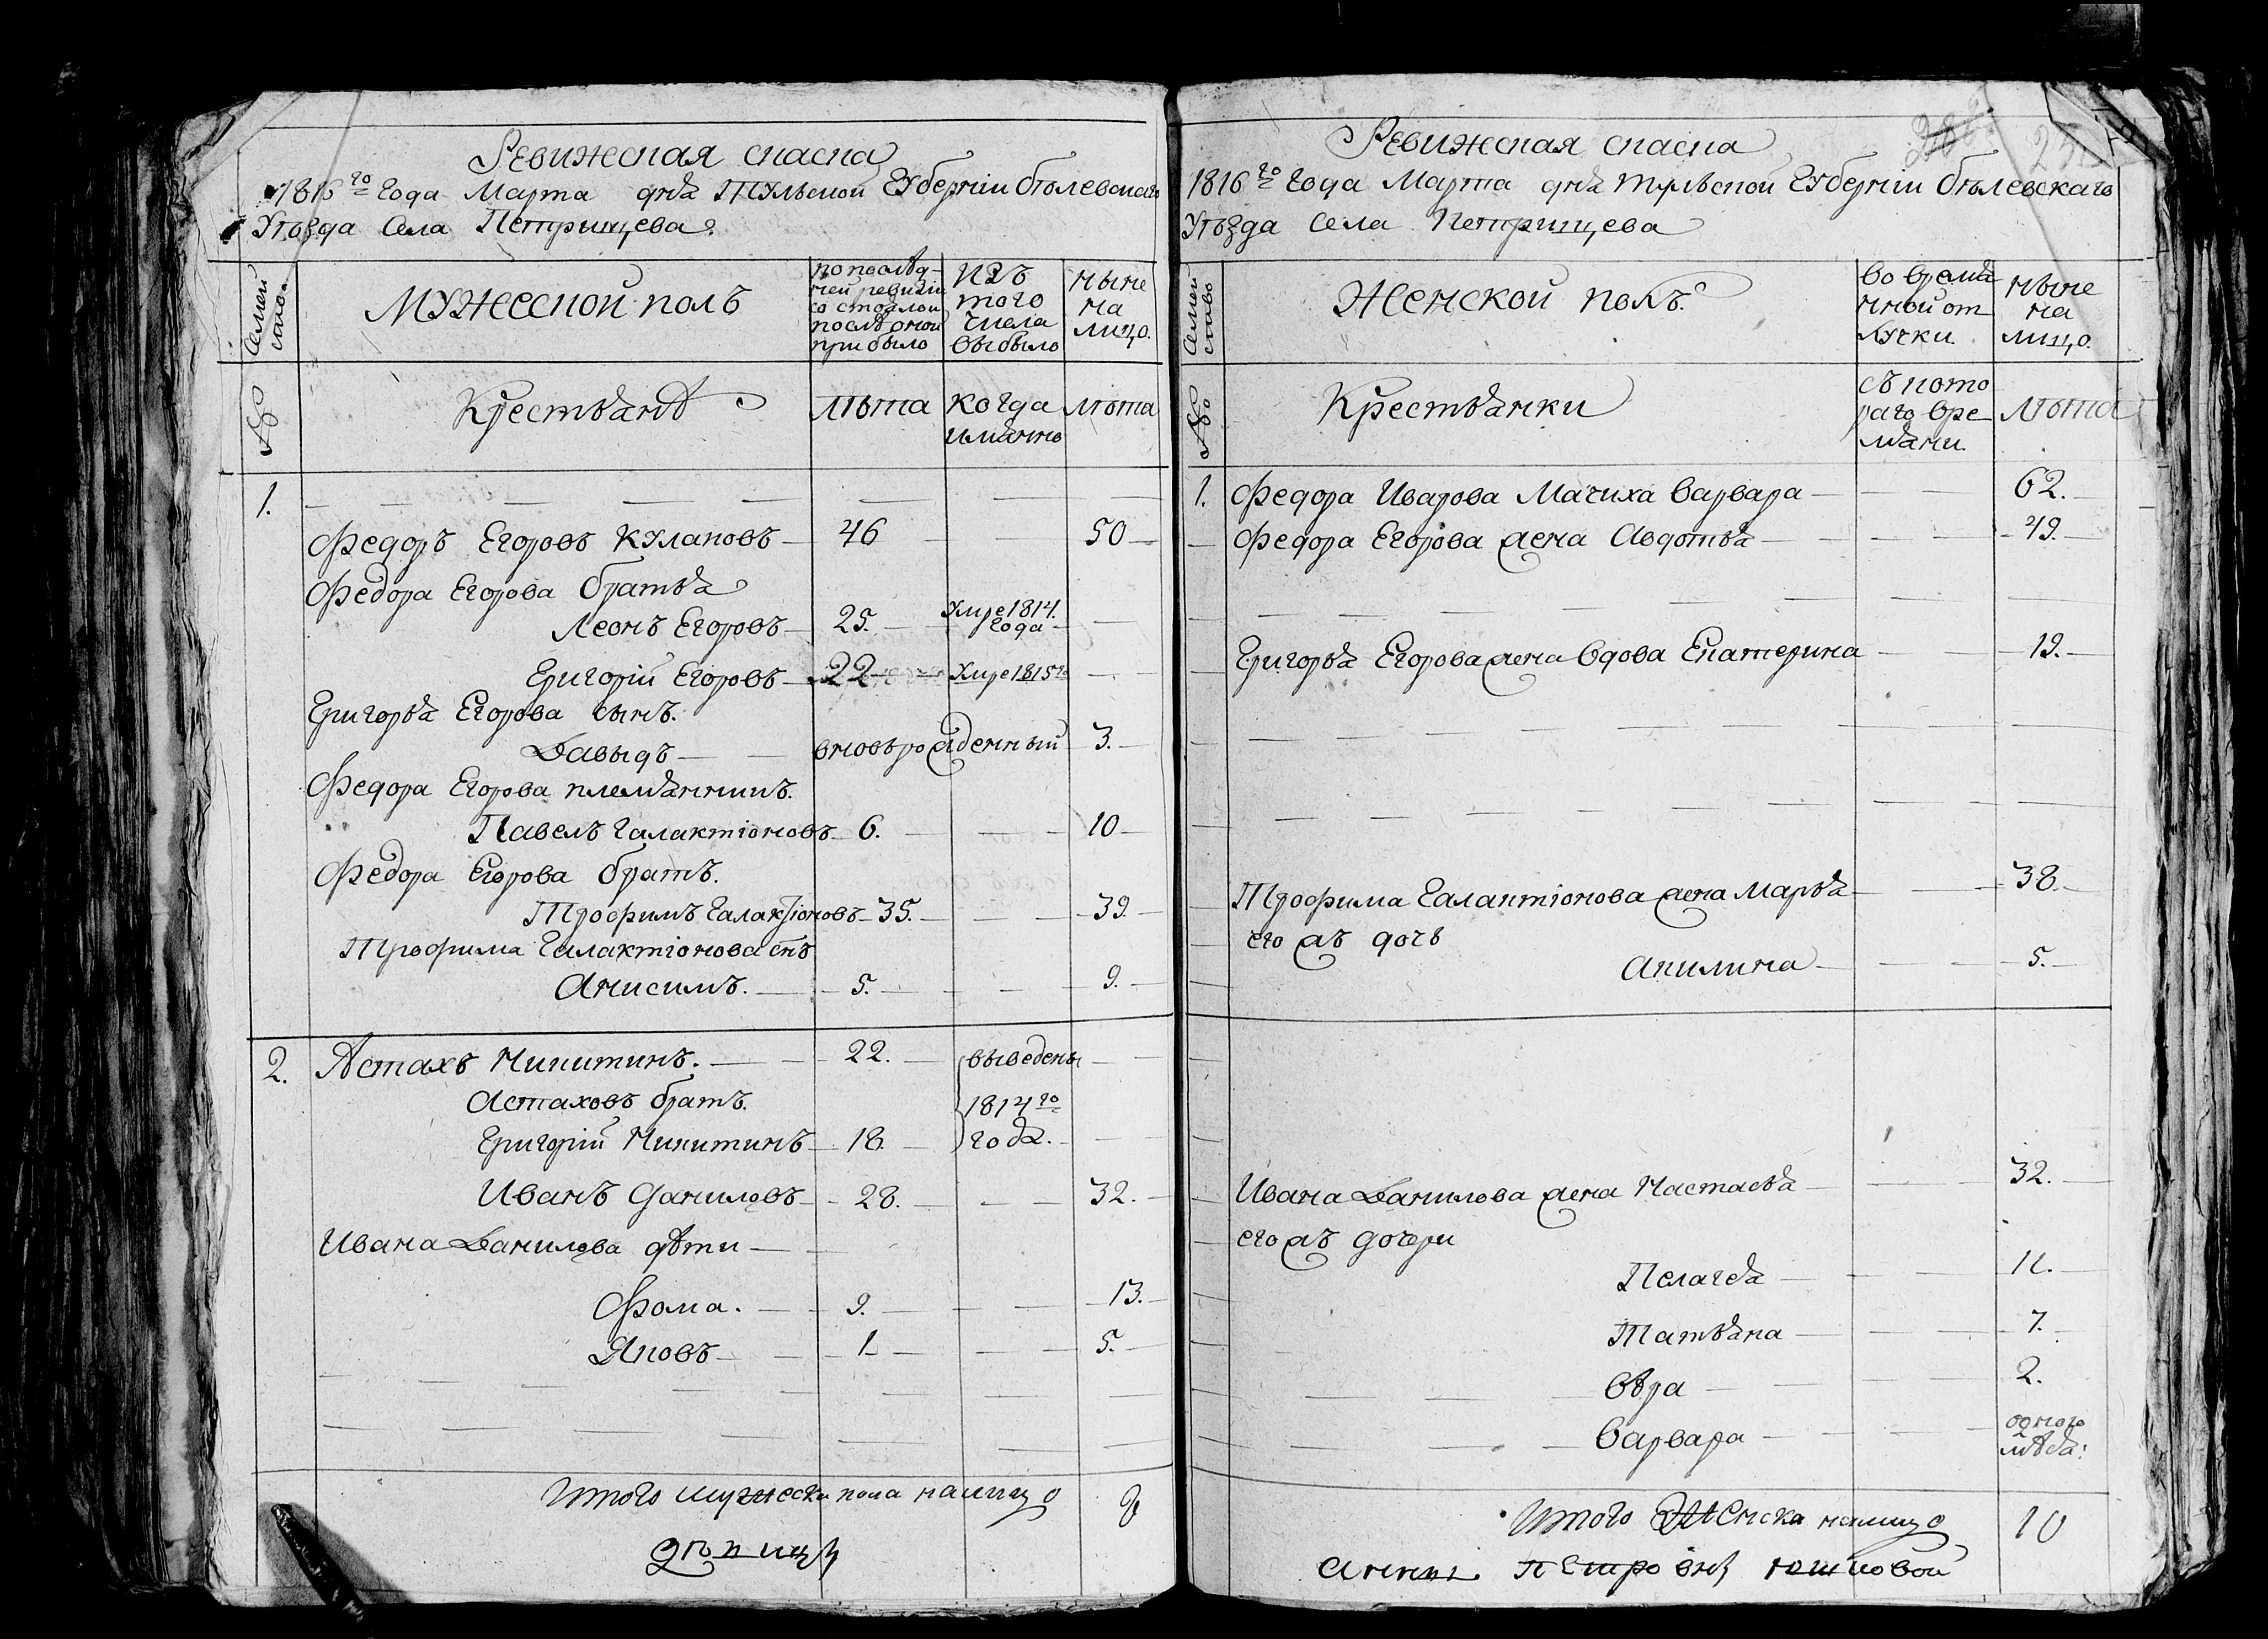 Ревижеская скаска
1816го Года Марта дня Тульской Губернiи бѣлевскаго
Уѣзда Села Петрищева
Семей ство.
Мужеской полъ
по послѣд-
ней ревизiи
состояло и
послѣ оной
прибыло
изъ
того
числа
выбыло
ныне
на
лицо.
№
Крестьянѣ
лѣта
когда
имянно
лѣта
1.
Федоръ Егоровъ Кулаковъ 46 50
Федора Егорова братья
Леонъ Егоровъ 25. Умре 1814. года
Григорiй Егоровъ 22 Умре 1815го
Григорья Егорова сынъ.
Давыдъ вновьрожденный 3.
Федора Егорова племянникъ.
Павелъ Галактiоновъ 6. 10
Федора Егорова братъ.
Трофимъ Галактiоновъ 35. 39.
Трофима Галактiонова снъ
Анисимъ. 5. 9.
2. Астахъ Никитинъ. 22. выведены
Астаховъ братъ. 1814го
Григорiй Никитинъ 18. года.
Иванъ Даниловъ 28. 32.
Ивана Данилова дѣти
Фома. 9. 13.
Яковъ 1 5.
Итого мужеска пола налицо 8
дѣвицы
Ревижеская скаска
1816го Года Марта дня Тульской Губернiи бѣлевскаго
Уѣзда Села Петрищева
Семей ство
Женской полъ.
во время
нной от
лучки.
ныне
на
лицо.
№
Крестьянки
съ кото
раго вре
мяни.
лѣта
1. Федора Мачиха Варвара 62.
Федора Егорова жена Авдотья 49.
Григорья Егорова жена вдова Екатерина 19.
Трофима Галактiонова жена Марья 38.
его жъ дочь
Акилина 5.
Ивана Данилова жена Настасья 32.
его жъ дочери
Пелагея 11.
Татьяна 7.
Вѣра 2.
Варвара одного
Итого женска налицо 10
Анны Петровны Юшковой